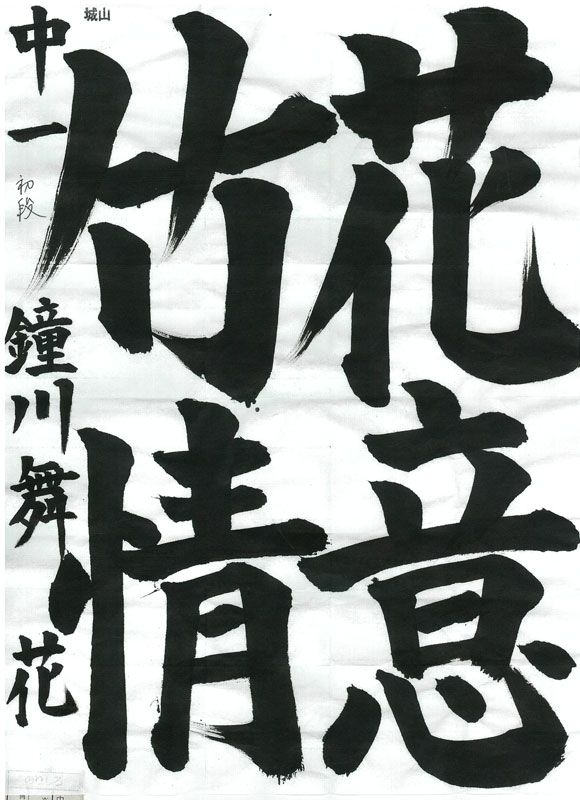 花意
竹情
城山
中一
初段
鐘川舞花